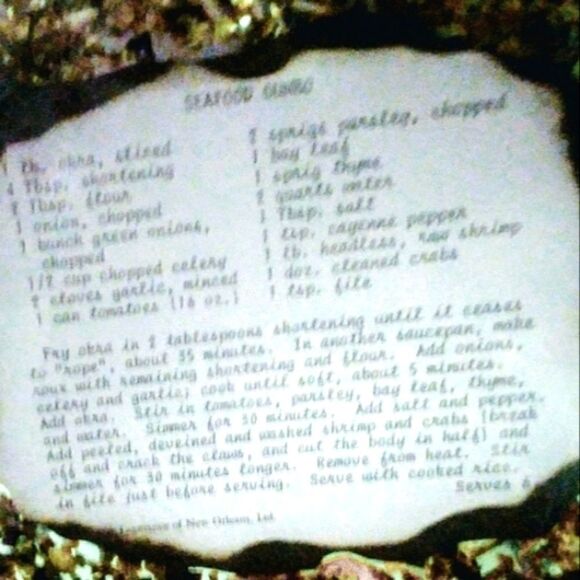 SEAFOOD GUMBO
1 lb. okra, sliced
4 Tbsp. shortening
2 Tbsp. flour
1 onion, chopped
1 bunch green onions,
chopped
1/2 cup chopped celery
2 cloves garlic, minced
1 can tomatoes (16 oz.)
2 sprigs parsley, chopped
1 bay leaf
1 sprig thyme
2 quarts water
1 Tbsp. salt
1 tsp. cayenne pepper
1 lb. headless, raw shrimp
1 doz. cleaned crabs
1 tsp. file
Fry okra in 2 tablespoons shortening until it ceases
to "rope", about 35 minutes. In another saucepan, make
roux with remaining shortening and flour. Add onions,
celery and garlic; cook until soft, about 5 minutes.
Add okra. Stir in tomatoes, parsley, bay leaf, thyme,
and water. Simmer for 30 minutes. Add salt and pepper.
Add peeled, deveined and washed shrimp and crabs (break
off and crack the claws, and cut the body in half) and
simmer for 30 minutes longer. Remove from heat. Stir
in file just before serving. Serve with cooked rice.
Serves 6
of New Orleans, Ltd.